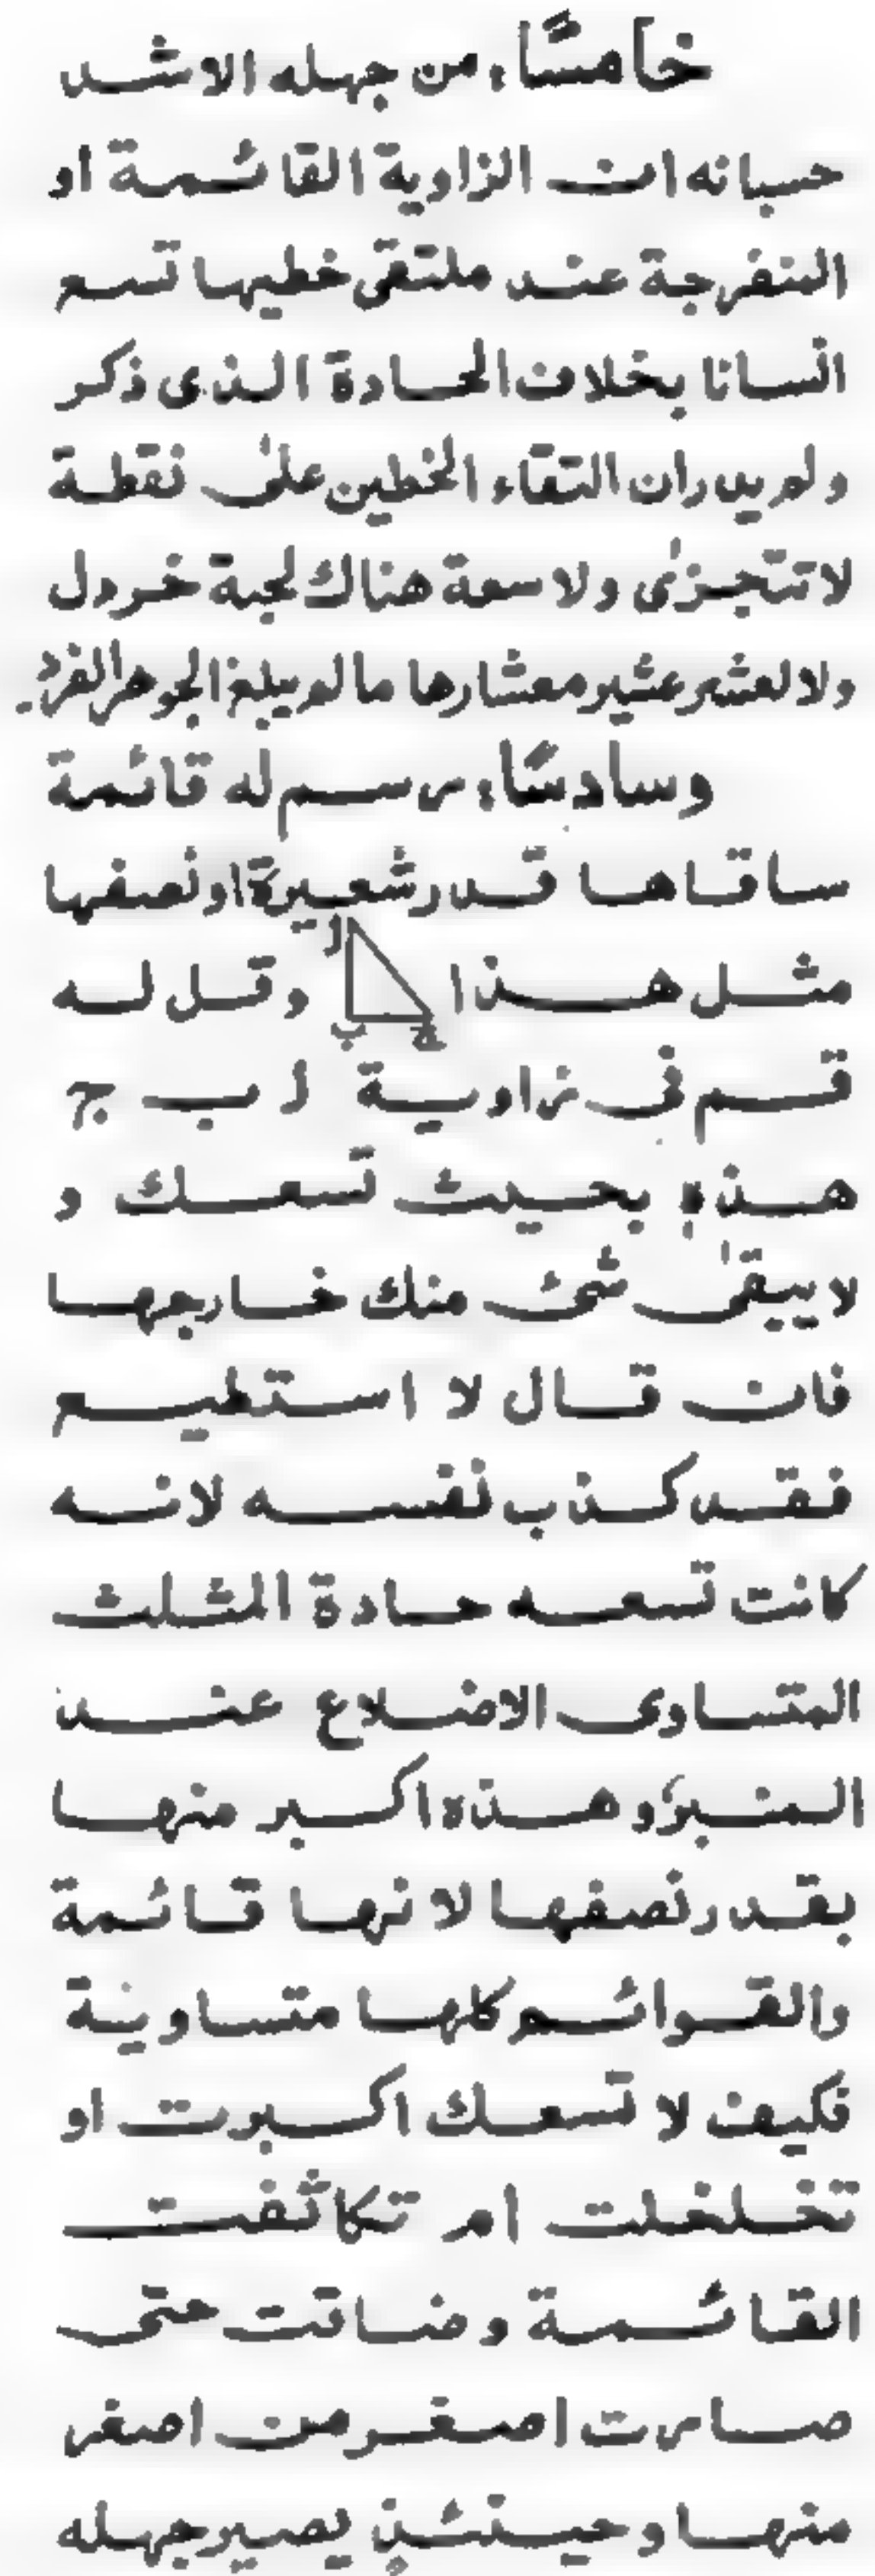 خامسًا، من جهله الاشد
حسبانه ان الزاوية القائمة او
المنفرجة عند ملتقى خطيها تسع
انسانا بخلاف الحادة الذى ذكر
ولم يدر ان التقاء الخطين علىٰ نقطة
لا تتجزىٰ ولا سعة هناك لحبة خردل
ولا لعشر عشير معشارها ما لم يبلغ الجوهر الفرد.
وسادسًا، رسم له قائمة
ساقاها قدر شعيرة او نصفها
مثل هذا وقل له
ا
ب
ج
قم فى زاوية ا ب ج
هذه بحيث تسعك و
لا يبقىٰ شئ منك خارجها
فان قال لا استطيع
فقد كذب نفسه لانه
كانت تسعه حادة المثلث
المتساوى الاضلاع عند
المنبر، وهذه اكبر منها
بقدر نصفها لانها قائمة
والقوائم كلها متساوية
فكيف لا تسعك اكبرت او
تخلخلت ام تكاثفت
القائمة وضاقت حتى
صارت اصغر من اصغر
منها وحينئذٍ يصير جهله